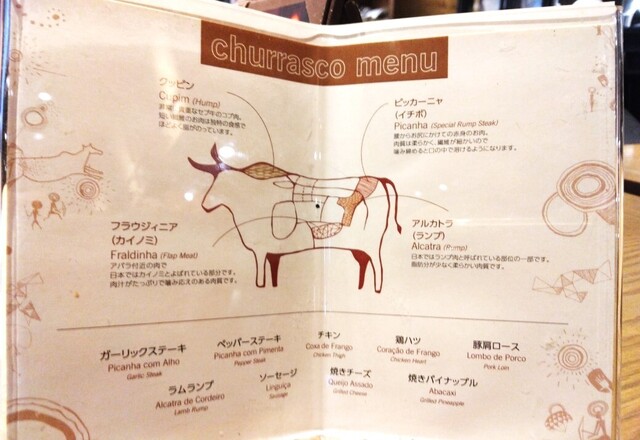 churrasco menu
クッピン
Cupim (Hump)
貴重なセブ牛のコブ肉。
お肉は独特の食感で
ほどよく脂がのっています。
ピッカーニャ
(イチボ)
Picanha (Special Rump Steak)
腰からお尻にかけての赤身のお肉。
肉質は柔らかく、繊維が細かいので
噛み締めると口の中で溶けるようになります。
フラウジィニア
(カイノミ)
Fraldinha (Flap Meat)
アバラ付近の肉で
日本ではカイノミとよばれている部分です。
肉汁がたっぷりで噛み応えのある肉質です。
アルカトラ
(ランプ)
Alcatra (Rump)
日本ではランプ肉と呼ばれている部位の一部です。
脂肪分が少なく柔らかい肉質です。
ガーリックステーキ
Picanha com Alho
Garlic Steak
ペッパーステーキ
Picanha com Pimenta
Pepper Steak
チキン
Coxa de Frango
Chicken Thigh
鶏ハツ
Coração de Frango
Chicken Heart
豚肩ロース
Lombo de Porco
Pork Loin
ラムランプ
Alcatra de Cordeiro
Lamb Rump
ソーセージ
Linguiça
Sausage
焼きチーズ
Queijo Assado
Grilled Cheese
焼きパイナップル
Abacaxi
Grilled Pineapple